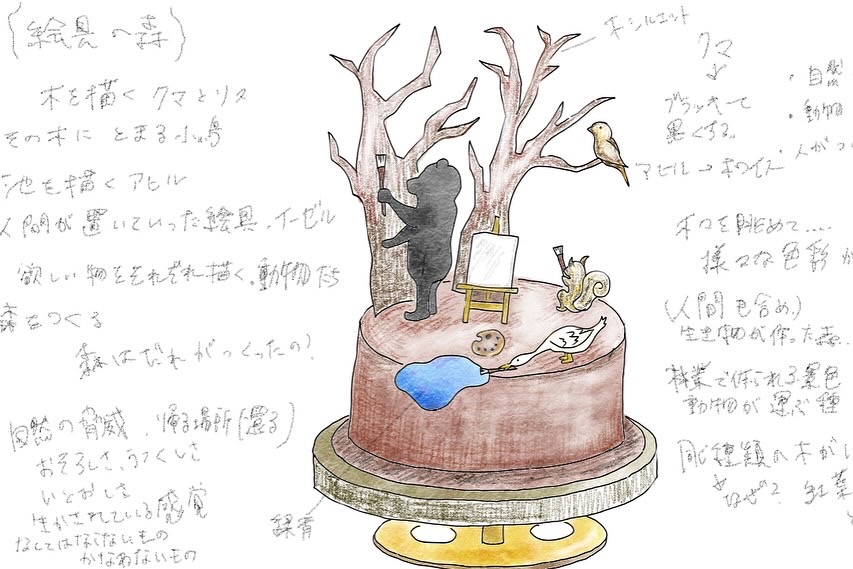 {絵具の森}
木を描く クマとリス
その木に とまる小鳥
池を描くアヒル
人間が置いていった絵具、イーゼル
欲しい物をそれぞれ描く、動物たち
森をつくる
森はだれがつくったの?
自然の脅威、帰る場所(還る)
おそろしさ、うつくしさ
いとおしさ
生かされている感覚
なくてはならないもの
かなわないもの
緑青
木シルエット
クマ
↓
黒くする。
・自然
・動物
アヒル→ホワイト
人がつ
木々を眺めて....
様々な色彩が
(人間も含め)
生き物が作った森.
林業で作られる景色
動物が運ぶ種
同じ種類の木が
なぜ? 紅葉